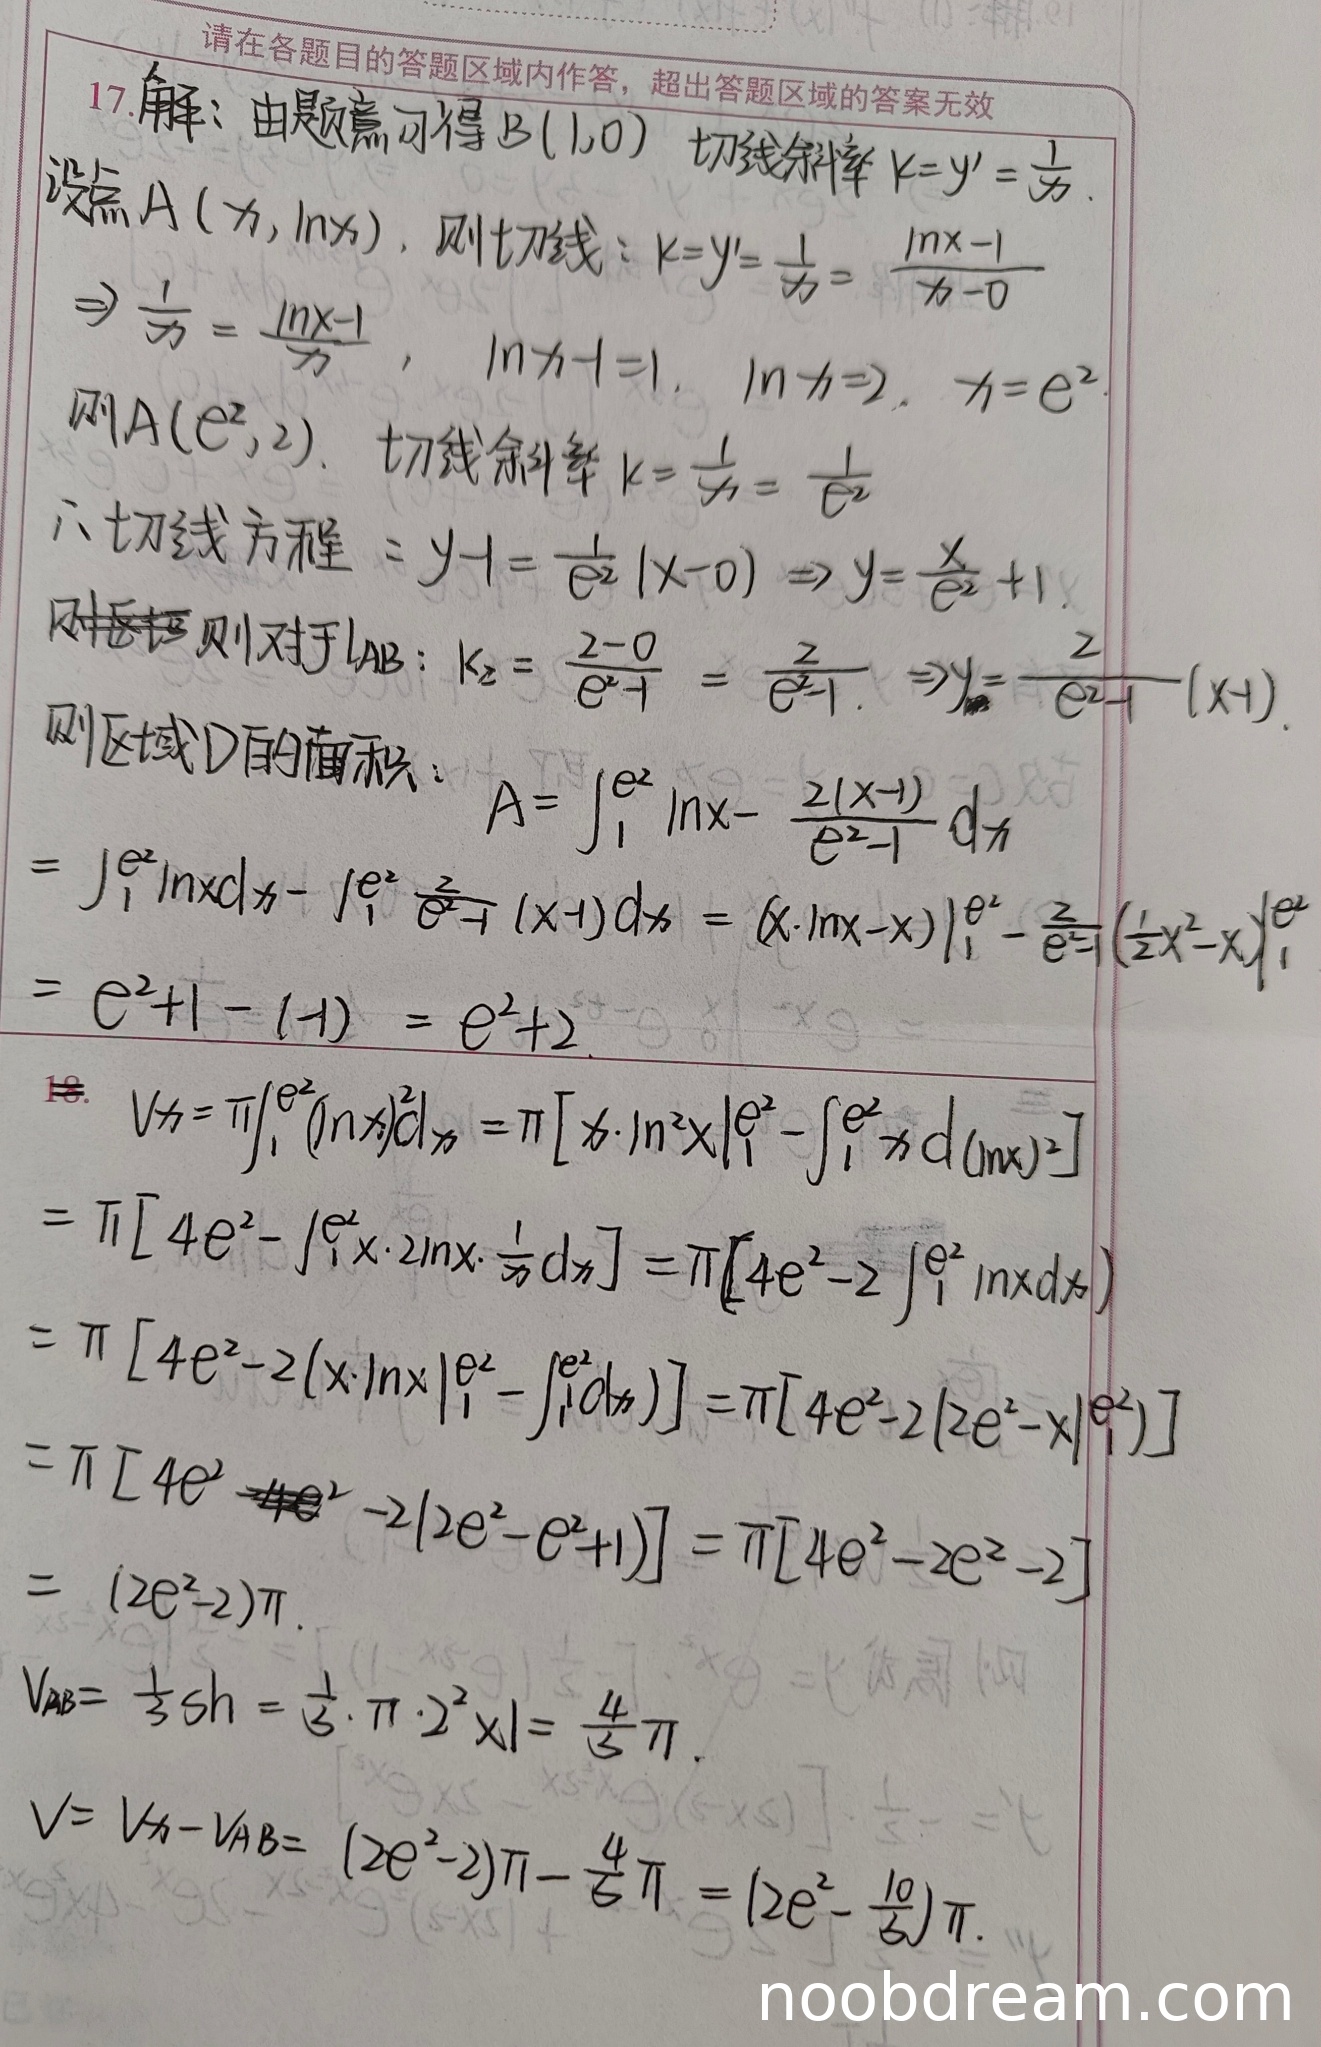 请在各题目的答题区域内作答，超出答题区域的答案无效
17.解：由题意可得B(1,0) 切线斜率 K=y'=1/x.
设点A(x,lnx). 则切线：K=y'=1/x=(lnx-1)/(x-0)
⇒ 1/x=(lnx-1)/x, lnx-1=1. lnx=2. x=e²
则A(e²,2). 切线斜率 K=1/x=1/e²
∴切线方程：y-1=1/e²(x-0) ⇒ y=x/e²+1.
则对于lAB: K₂=(2-0)/(e²-1)=2/(e²-1). ⇒y=2/(e²-1)(x-1).
则区域D的面积：A=∫₁^e² lnx-2(x-1)/(e²-1) dx
=∫₁^e² lnxdx-∫₁^e² 2/(e²-1)(x-1)dx=(x·lnx-x)|₁^e²-2/(e²-1)(1/2x²-x)|₁^e²
=e²+1-(-1)=e²+2.
18.
Vx=π∫₁^e²(lnx)²dx=π[x·ln²x|₁^e²-∫₁^e² x d(lnx)²]
=π[4e²-∫₁^e² x·2lnx·1/x dx]=π[4e²-2∫₁^e² lnxdx)
=π[4e²-2(x·lnx|₁^e²-∫₁^e² dx)]=π[4e²-2(2e²-x|₁^e²)]
=π[4e² -2(2e²-e²+1)]=π[4e²-2e²-2]
=(2e²-2)π.
VAB=1/3sh=1/3·π·2²x1=4/3π.
V=Vx-VAB=(2e²-2)π-4/3π=(2e²-10/3)π.
noobdream.com